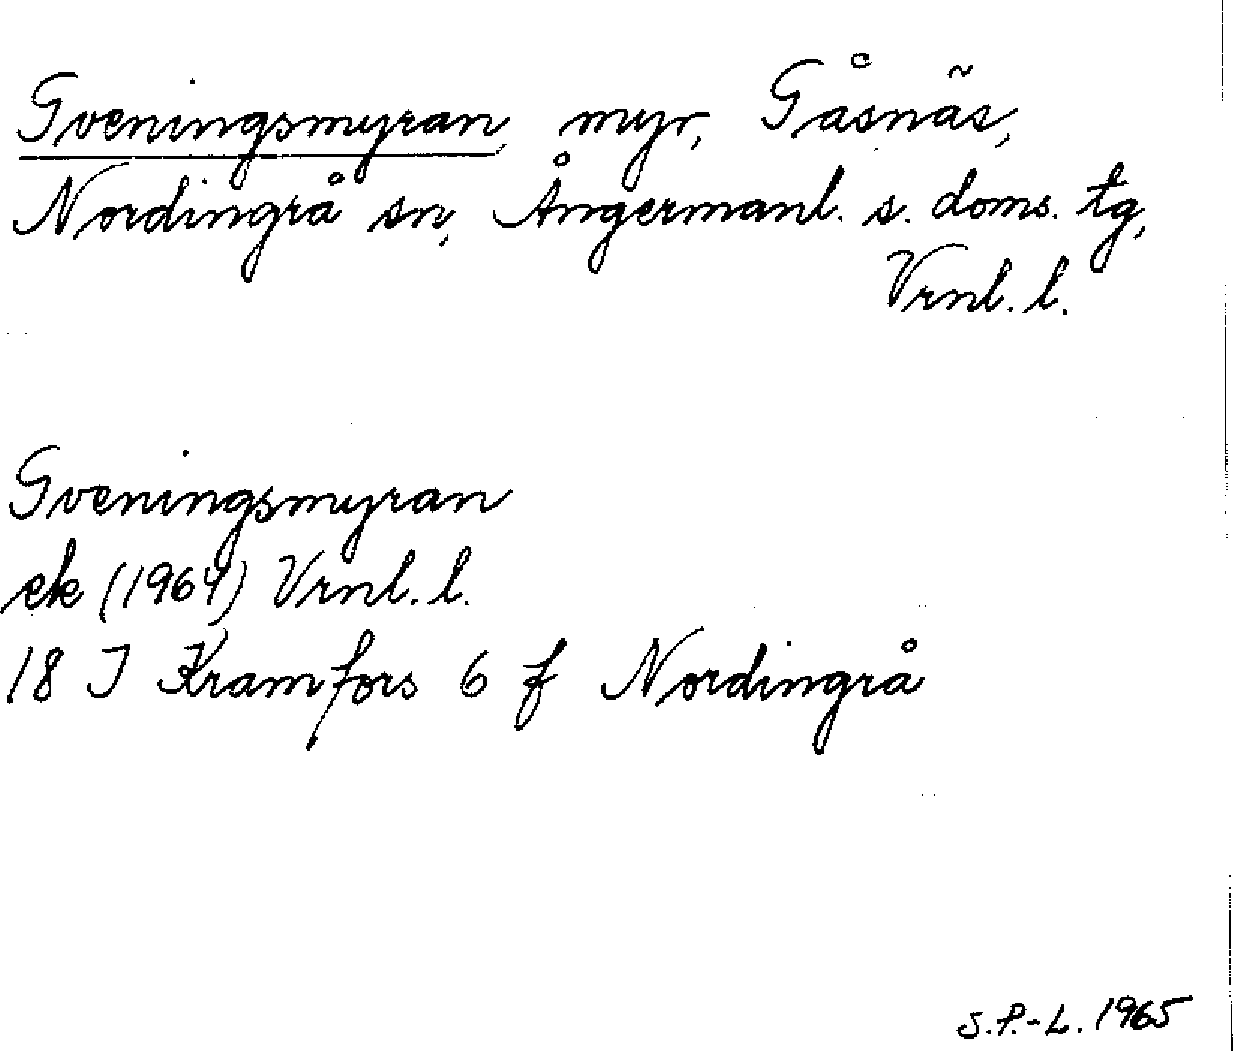 Gveningsmyran, myr, Gåsnäs,
Nordingrå sn, Ångermanl. s. doms. tg,
Vrnl. l.
Gveningsmyran
ek (1964) Vrnl. l.
18 I Kramfors 6 f Nordingrå
S.P.-L. 1965